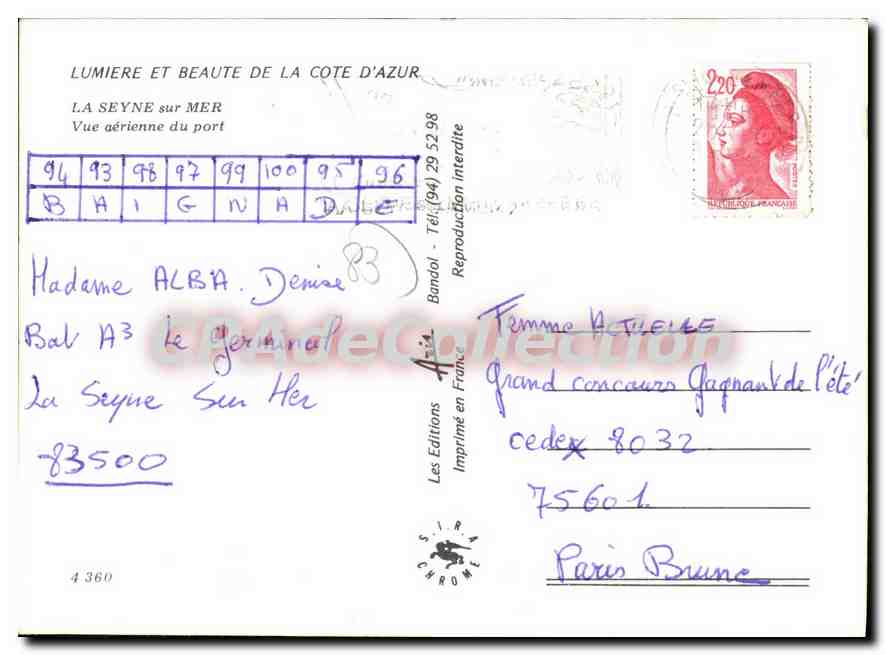 LUMIERE ET BEAUTE DE LA COTE D'AZUR
LA SEYNE sur MER
Vue aérienne du port
94 93 98 97 99 100 95 96
B A I G N A D E
83
Madame ALBA. Denise
Bat A3 Le Germinal
La Seyne Sur Mer
83500
4 360
Les Editions Aris Bandol - Tél. (94) 29 52 98
Imprimé en France Reproduction interdite
S.I.R.A
CHROME
2,20
POSTES
REPUBLIQUE FRANÇAISE
Femme ACTUELLE
Grand concours Gagnant de l'été
cedex 8032
75601
Paris Brune
CPAdeCollection